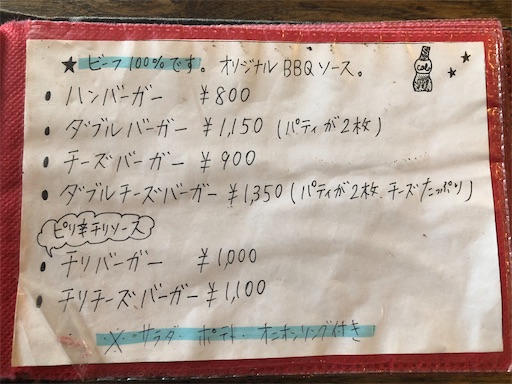 ★ ビーフ100%です。オリジナルBBQソース。
• ハンバーガー ¥800
• ダブルバーガー ¥1,150 (パティが2枚)
• チーズバーガー ¥900
• ダブルチーズバーガー ¥1,350 (パティが2枚、チーズたっぷり)
ピリ辛チリソース
• チリバーガー ¥1,000
• チリチーズバーガー ¥1,100
※ サラダ・ポテト・オニオンリング付き